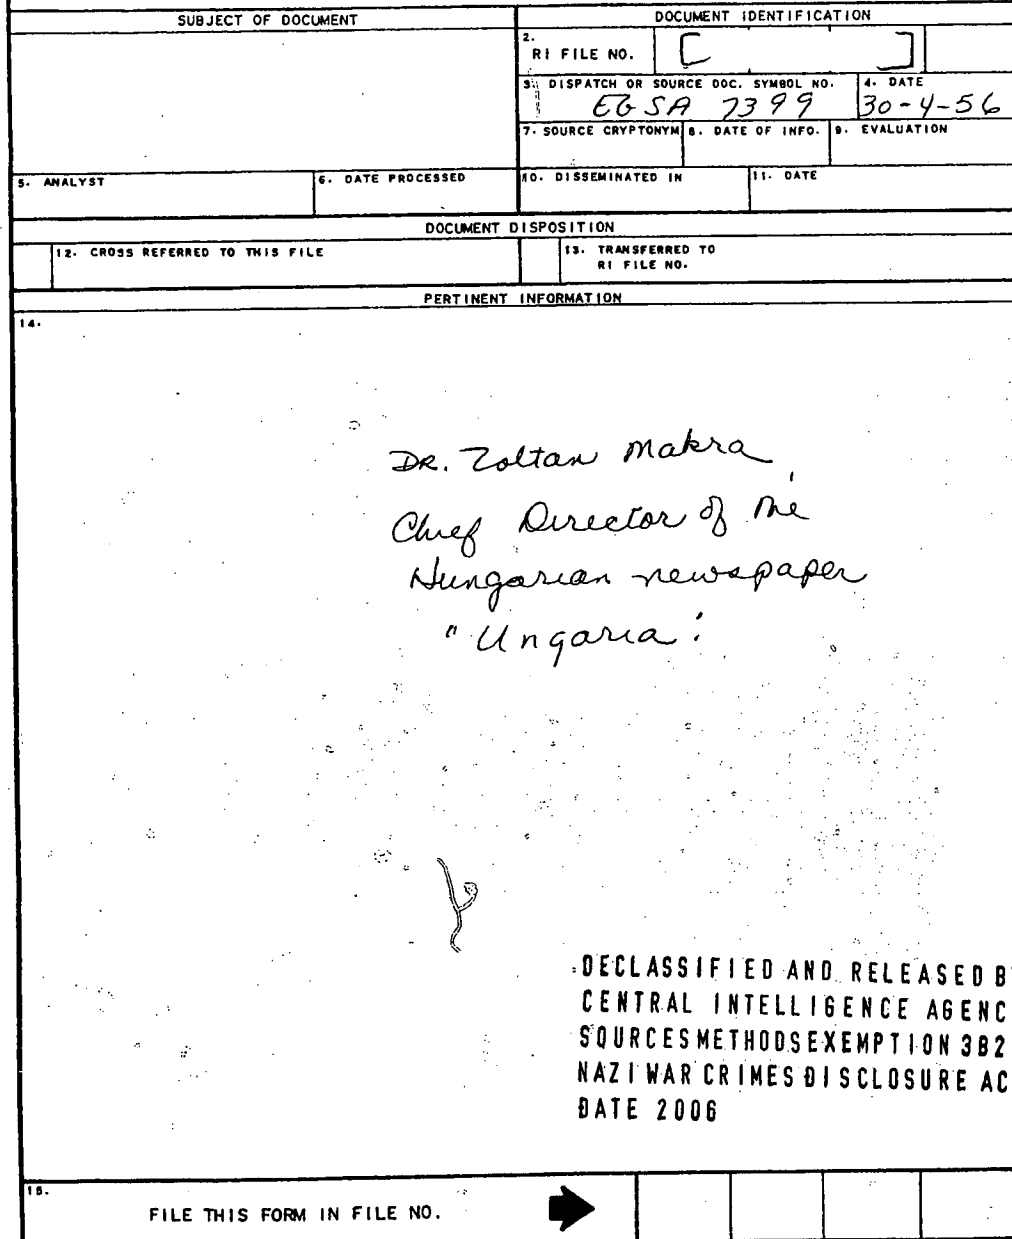 SUBJECT OF DOCUMENT
DOCUMENT IDENTIFICATION
2.
RI FILE NO.
3. DISPATCH OR SOURCE DOC. SYMBOL NO.
EGSA 7399
4. DATE
30-4-56
7. SOURCE CRYPTONYM
8. DATE OF INFO.
9. EVALUATION
5. ANALYST
6. DATE PROCESSED
10. DISSEMINATED IN
11. DATE
DOCUMENT DISPOSITION
12. CROSS REFERRED TO THIS FILE
13. TRANSFERRED TO
RI FILE NO.
PERTINENT INFORMATION
14.
DR. Zoltan Makra,
Chief Director of the
Hungarian newspaper
"Ungaria".
DECLASSIFIED AND RELEASED B
CENTRAL INTELLIGENCE AGENC
SOURCESMETHODSEXEMPTION 3B2
NAZI WAR CRIMES DISCLOSURE AC
DATE 2006
15.
FILE THIS FORM IN FILE NO.